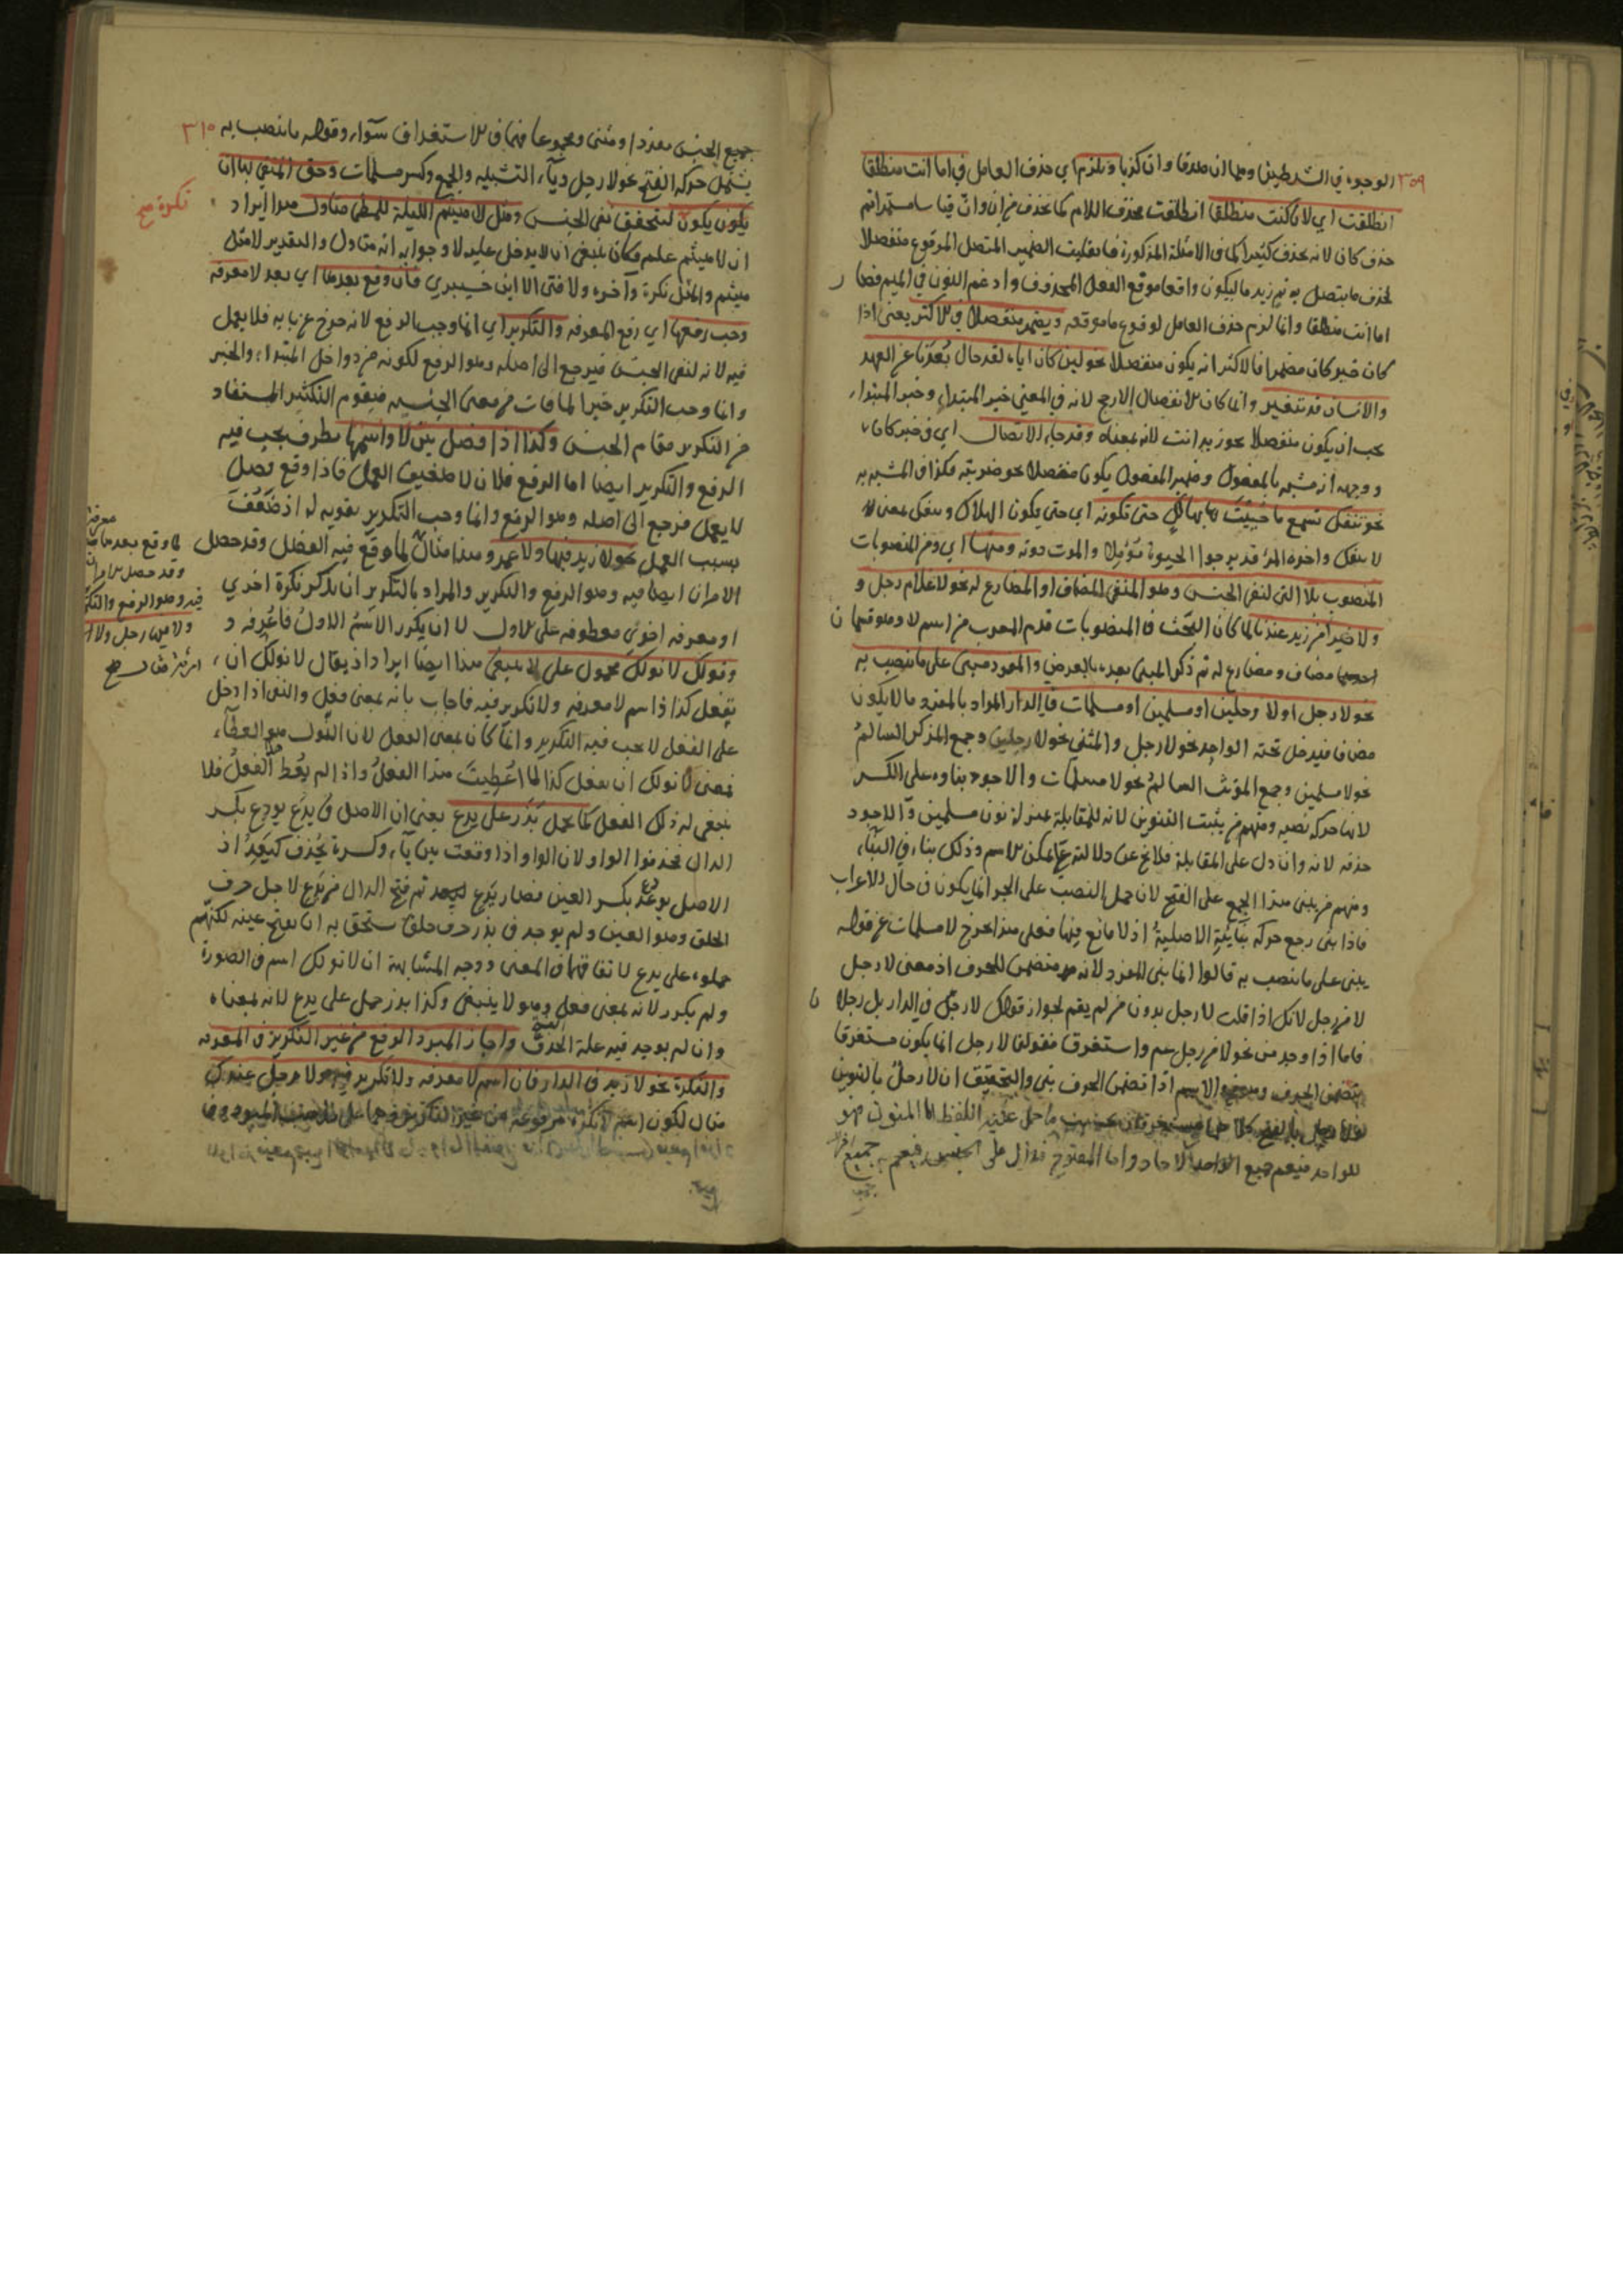 ٣٥٩
الوجوه في الشرطين وهما ان صدقا وان كذبا ويلزم اي حذف العامل في اما انت منطلقا
انطلقت اي لان كنت منطلقا انطلقت بحذف اللام كما يحذف من ان وان قياسا مستمرا ثم
حذف كان لانه يحذف كثيرا كما في الامثلة المذكورة فانقلبت الضمير المتصل المرفوع منفصلا
لحذف ما يتصل به ثم زيد ما ليكون واقعا موقع الفعل المحذوف وادغم النون في الميم فصار
اما انت منطلقا وانما لزم حذف العامل لوقوع ما موقعه ويضمر منفصلا في الاكثر يعني اذا
كان خبر كان مضمرا فالاكثر انه يكون منفصلا نحو لئن كان اياه لقد حال بعدنا عن العهد
والانسان قد يتغير وانما كان الانفصال الارجح لانه في المعنى خبر المبتداء وخبر المبتداء
يجب ان يكون منفصلا نحو زيد انت لانه بمعناه وقد جاء الاتصال اي في خبر كان
ووجهه انه مشبه بالمفعول وضمير المفعول يكون متصلا نحو ضربته فكذا في المشبه به
نحو تنفك تسمع ما حييت بهالك حتى تكونه اي حتى يكون الهلاك وتنفك بمعنى لا
لا ينفك واخره المرء قد يرجوا الحيوة مؤملا والموت دونه ومنها اي ومن المنصوبات
المنصوب بلا التي لنفي الجنس وهو المنفي المضاف او المضارع له نحو لا غلام رجل و
ولا خيرا من زيد عندنا لما كان البحث في المنصوبات قدم المعرب من اسم لا وهو قسمان
احدهما مضاف ومضارع له ثم ذكر المبني بعده بالعرض والمفرد مبني على ما ينصب به
نحو لا رجل اولا رجلين او مسلمين او مسلمات في الدار المراد بالمفرد ما لا يكون
مضافا فيدخل تحته الواحد نحو لا رجل والمثنى نحو لا رجلين وجمع المذكر السالم
نحو لا مسلمين وجمع المؤنث السالم نحو لا مسلمات والاجود بناوه على الكسر
لانها حركة نصبه ومنهم من يثبت التنوين لانه للمقابلة بمنزلة نون مسلمين والاجود
حذفه لانه وان دل على المقابلة فلا يخ عن دلالته على تمكن الاسم وذلك بناء في البناء
ومنهم من يبني هذا الجمع على الفتح لان حمل النصب على الجر انما يكون في حال الاعراب
فاذا بني رجع حركة بنائية الاصلية اذ لا مانع فيها فعلى هذا يخرج لا مسلمات عن قوله
يبنى على ما ينصب به قالوا انما بني المفرد لانه متضمن للحرف اذ معنى لا رجل
لا من رجل لانك اذا قلت لا رجل بدون من لم يعم لجواز قولك لا رجل في الدار بل رجلان
فاما اذا وجد من نحو لا من رجل عم واستغرق فقولنا لا رجل انما يكون مستغرقا
بتضمن الحرف الاسم اذا تضمن الحرف بني والتحقيق ان لا رجل بالتنوين
للواحد فيعم جميع الاحاد واما المفتوح فدال على الجنس فيعم
٣١٠
جميع الجنس مفردا ومثنى ومجموعا فهما في الاستغراق سواء وقوله ما ينصب به
يشمل حركة الفتح نحو لا رجل وياء التثنية والجمع وكسر مسلمات وحق المنفي بها ان
يكون يكون لتحقق نفي الجنس ومثل لا هيثم الليلة للمطي متاول هذا ايراد
نكرة صح
ان لا هيثم علم فكان ينبغي ان لا يدخل عليه لا وجوابه انه متاول والتقدير لا مثل
هيثم والمثل نكرة وآخره ولا فتى الا ابن خيبري فان وقع بعدها اي بعد لا معرفة
وجب رفعها اي رفع المعرفة والتكرير اي انما وجب الرفع لانه خرج عن بابه فلا يعمل
فيه لانه لنفي الجنس فيرجع الى اصله وهو الرفع لكونه من دواخل المبتداء والخبر
وانما وجب التكرير جبرا لما فات من معنى الجنسية فيقوم التكثير المستفاد
من التكرير مقام الجنس وكذا اذا فصل بين لا واسمها بظرف يجب فيه
الرفع والتكرير ايضا اما الرفع فلان لا ضعيف العمل فاذا وقع فصل
لا يعمل فرجع الى اصله وهو الرفع وانما وجب التكرير تقوية له اذ ضعفت
بسبب العمل نحو لا زيد فيها ولا عمرو هذا مثال لما وقع فيه الفصل وقد حصل
الامران ايضا فيه وهو الرفع والتكرير والمراد بالتكرير ان يذكر نكرة اخرى
او معرفة اخرى معطوفة على الاول لا ان يكرر الاسم الاول فاعرفه و
وقولك لا نولك محمول على لا ينبغي هذا ايضا ايراد اذ يقال لا نولك ان
تفعل كذا اذ اسم لا معرفة ولا تكرير فيه فاجاب بانه بمعنى فعل والنفي اذا دخل
على الفعل لا يجب فيه التكرير وانما كان بمعنى الفعل لان النول هو العطاء
فمعنى لا نولك ان تفعل كذا لما اعطيت هذا الفعل واذا لم يعط الفعل فلا
ينبغي له ذلك الفعل كما يحمل يذر على يدع يعني ان الاصل في يدع يودع بكسر
الدال فحذفوا الواو لان الواو اذا وقعت بين ياء وكسرة يحذف كيعد اذ
الاصل يوعد بكسر العين فصار يدع ثم فتح الدال من يدع لاجل حرف
الحلق وهو العين ولم يوجد في يذر حرف حلق ستحق به ان يفتح عينه لكنهم
حملوه على يدع لاتفاقهما في المعنى ووجه المشابهة ان لا نولك اسم في الصورة
ولم يكرر لانه بمعنى فعل وهو لا ينبغي وكذا يذر حمل على يدع لانه بمعناه
وان لم يوجد فيه علة الحذف واجاز المبرد الرفع من غير التكرير في المعرفة
والنكرة نحو لا زيد في الدار فان اسم لا معرفة ولا تكرير فيه ولا رجل عندك
مثال لكون
معرفة
لما وقع بعدها
وقد حصل الامران
فيه وهو الرفع والتكرير
ولا فيها رجل ولا